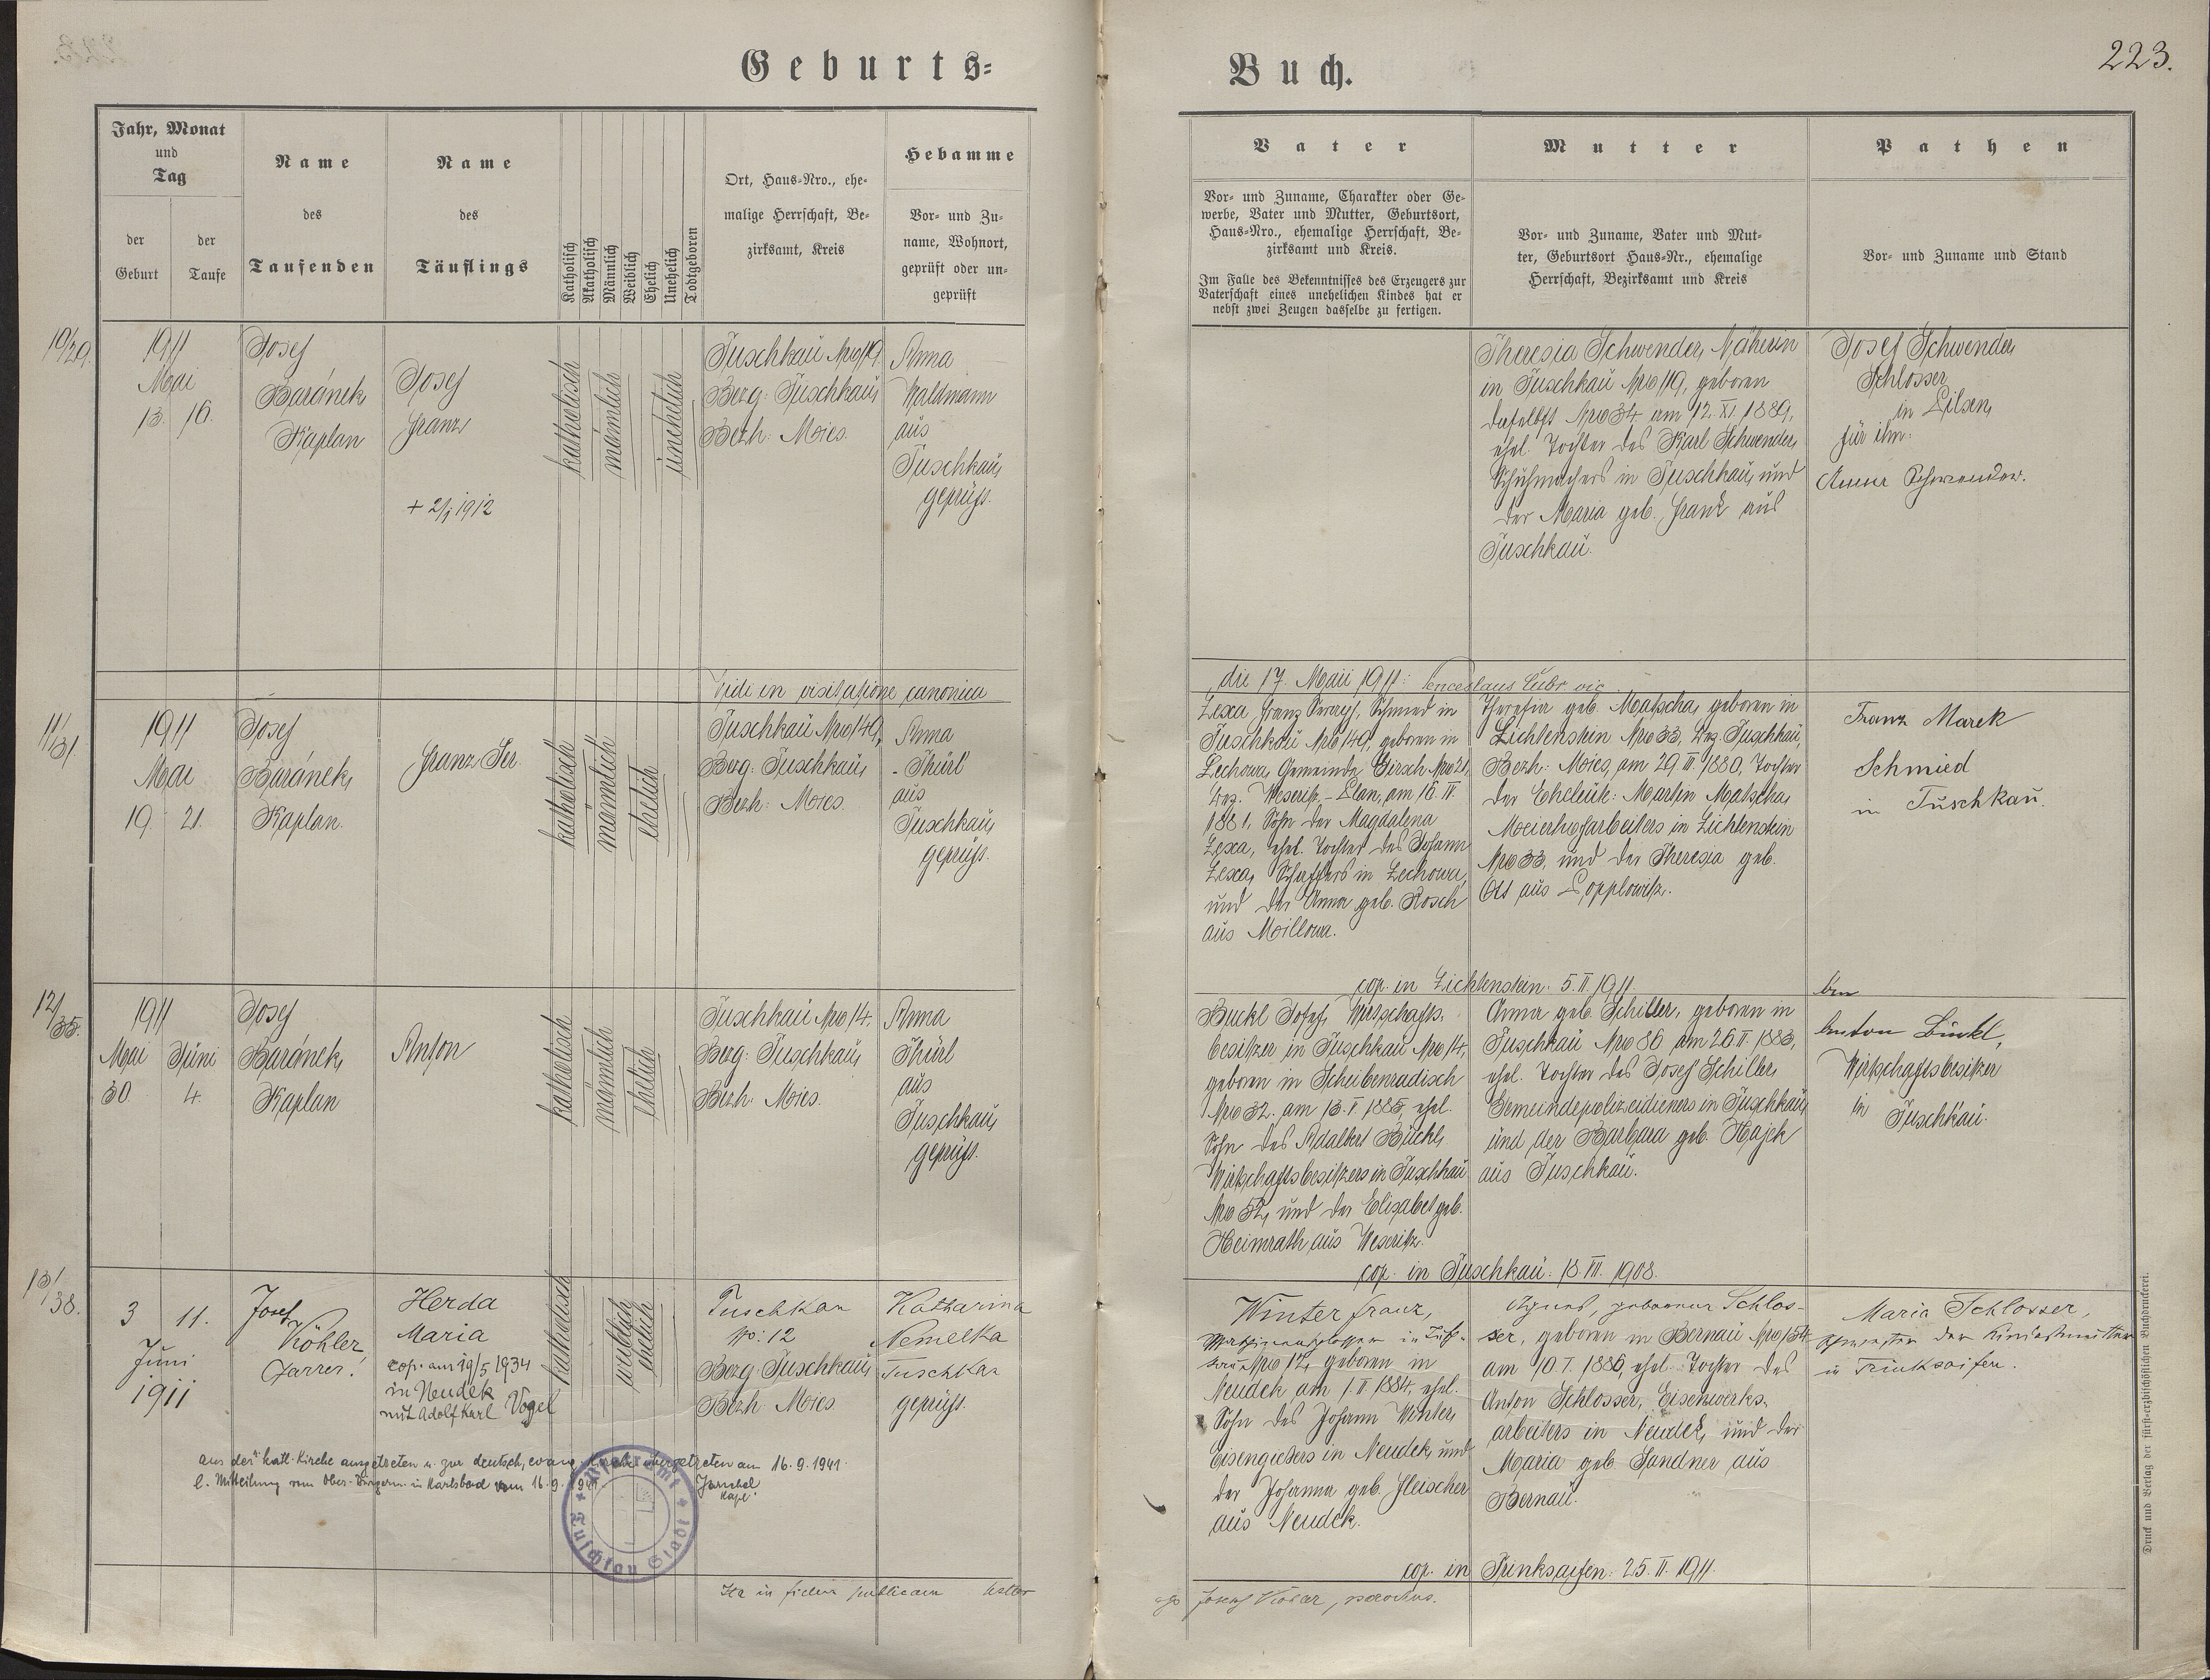 Geburts=
Buch.
223.
Jahr, Monat
und
Tag
der
Geburt
der
Taufe
Name
des
Taufenden
Name
des
Täuflings
Katholisch
Akatholisch
Männlich
Weiblich
Ehelich
Unehelich
Todtgeboren
Ort, Haus=Nro., ehe=
malige Herrschaft, Be=
zirksamt, Kreis
Hebamme
Vor= und Zu=
name, Wohnort,
geprüft oder un=
geprüft
Vater
Vor= und Zuname, Charakter oder Ge=
werbe, Vater und Mutter, Geburtsort,
Haus=Nro., ehemalige Herrschaft, Be=
zirksamt und Kreis.
Im Falle des Bekenntnisses des Erzeugers zur
Vaterschaft eines unehelichen Kindes hat er
nebst zwei Zeugen dasselbe zu fertigen.
Mutter
Vor= und Zuname, Vater und Mut=
ter, Geburtsort Haus=Nr., ehemalige
Herrschaft, Bezirksamt und Kreis
Pathen
Vor= und Zuname und Stand
10/29.
1911
Mai
13. 16.
Josef
Baránek,
Kaplan
Josef
Franz
+ 2/1 1912
katholisch
männlich
unehelich
Tuschkau Nro 119.
Bezg: Tuschkau,
Bezh: Mies.
Anna
Waldmann
aus
Tuschkau,
geprüft.
Theresia Schwender, Näherin
in Tuschkau Nro 119, geboren
daselbst Nro 34 am 12. XI. 1889,
ehel. Tochter des Karl Schwender,
Schuhmachers in Tuschkau, und
der Maria geb. Frank aus
Tuschkau.
Josef Schwender
Schlosser
in Pilsen,
für ihn:
Anna Schwender.
Vidi in visitatione canonica
die 17. Maii 1911: Venceslaus Lubr vic.
11/31
1911
Mai
19. 21.
Josef
Baránek,
Kaplan.
Franz Ser.
katholisch
männlich
ehelich
Tuschkau Nro 149,
Bezg: Tuschkau,
Bezh: Mies.
Anna
Thürl
aus
Tuschkau,
geprüft.
Lexa Franz Seraf, Schmied in
Tuschkau Nro 149, geboren in
Lechowa, Gemeinde Girsch Nro 21,
Bez. Weseritz - Plan, am 16. IV.
1881, Sohn der Magdalena
Lexa, ehel. Tochter des Johann
Lexa, Schaffers in Lechowa,
und der Anna geb. Rosch
aus Millowa.
Theresia geb. Matscha, geboren in
Lichtenstein Nro 33, Bez. Tuschkau,
Bezh: Mies, am 29. III. 1880, Tochter
der Eheleute: Martin Matscha,
Meierhofarbeiters in Lichtenstein
Nro 33, und der Theresia geb.
Ott aus Popplowitz.
Franz Marek
Schmied
in Tuschkau.
cop. in Lichtenstein: 5. II. 1911.
12/35.
1911
Mai Juni
30. 4.
Josef
Baránek,
Kaplan
Anton
katholisch
männlich
ehelich
Tuschkau Nro 14.
Bezg: Tuschkau,
Bezh. Mies.
Anna
Thürl
aus
Tuschkau,
geprüft.
Buckl Josef, Wirtschafts-
besitzer in Tuschkau Nro 14,
geboren in Scheibenradisch
Nro 32. am 13. I. 1885, ehel.
Sohn des Adalbert Bückl,
Wirtschaftsbesitzers in Tuschkau
Nro 52, und der Elisabet geb.
Heimrath aus Weseritz.
Anna geb. Schiller, geboren in
Tuschkau Nro 86 am 26. II. 1883,
ehel. Tochter des Josef Schiller,
Gemeindepolizeidieners in Tuschkau,
und der Barbara geb. Hajek
aus Tuschkau.
Anton Buckl,
Wirtschaftsbesitzer
in Tuschkau.
cop. in Tuschkau: 18. VII. 1908.
13/38.
3 11.
Juni
1911
Josef
Köhler
Pfarrer!
Herda
Maria
cop. am 19/5 1934
in Neudek
mit Adolf Karl Vogel
katholisch
weiblich
ehelich
Tuschkau
No: 12
Bezg. Tuschkau,
Bezh. Mies.
Katharina
Nemelka
Tuschkau
geprüft.
Winter Franz,
in Tusch-
kau Nro 12, geboren in
Neudek am 1. II. 1884, ehel.
Sohn des Johann Winter,
Eisengießers in Neudek, und
der Johanna geb. Fleischer
aus Neudek.
Agnes, geborene Schlos-
ser, geboren in Bernau Nro 54
am 10. I. 1886, ehel. Tochter des
Anton Schlosser, Eisenwerks-
arbeiters in Neudek, und der
Maria geb. Sandner aus
Bernau.
Maria Schlosser,
Schwester der Kindesmutter
in Trinksaifen.
aus der kath. Kirche ausgetreten u. zur deutsch. evang. Kirche übergetreten am 16. 9. 1941.
l. Mitteilung vom Ober-Bürgerm. in Karlsbad vom 16. 9. 1941.
Pfarramt
Tuschkau Stadt
cop. in Trinksaifen: 25. II. 1911.
Ita in fidem publicam
Druck und Verlag der fürst=erzbischöflichen Buchdruckerei.